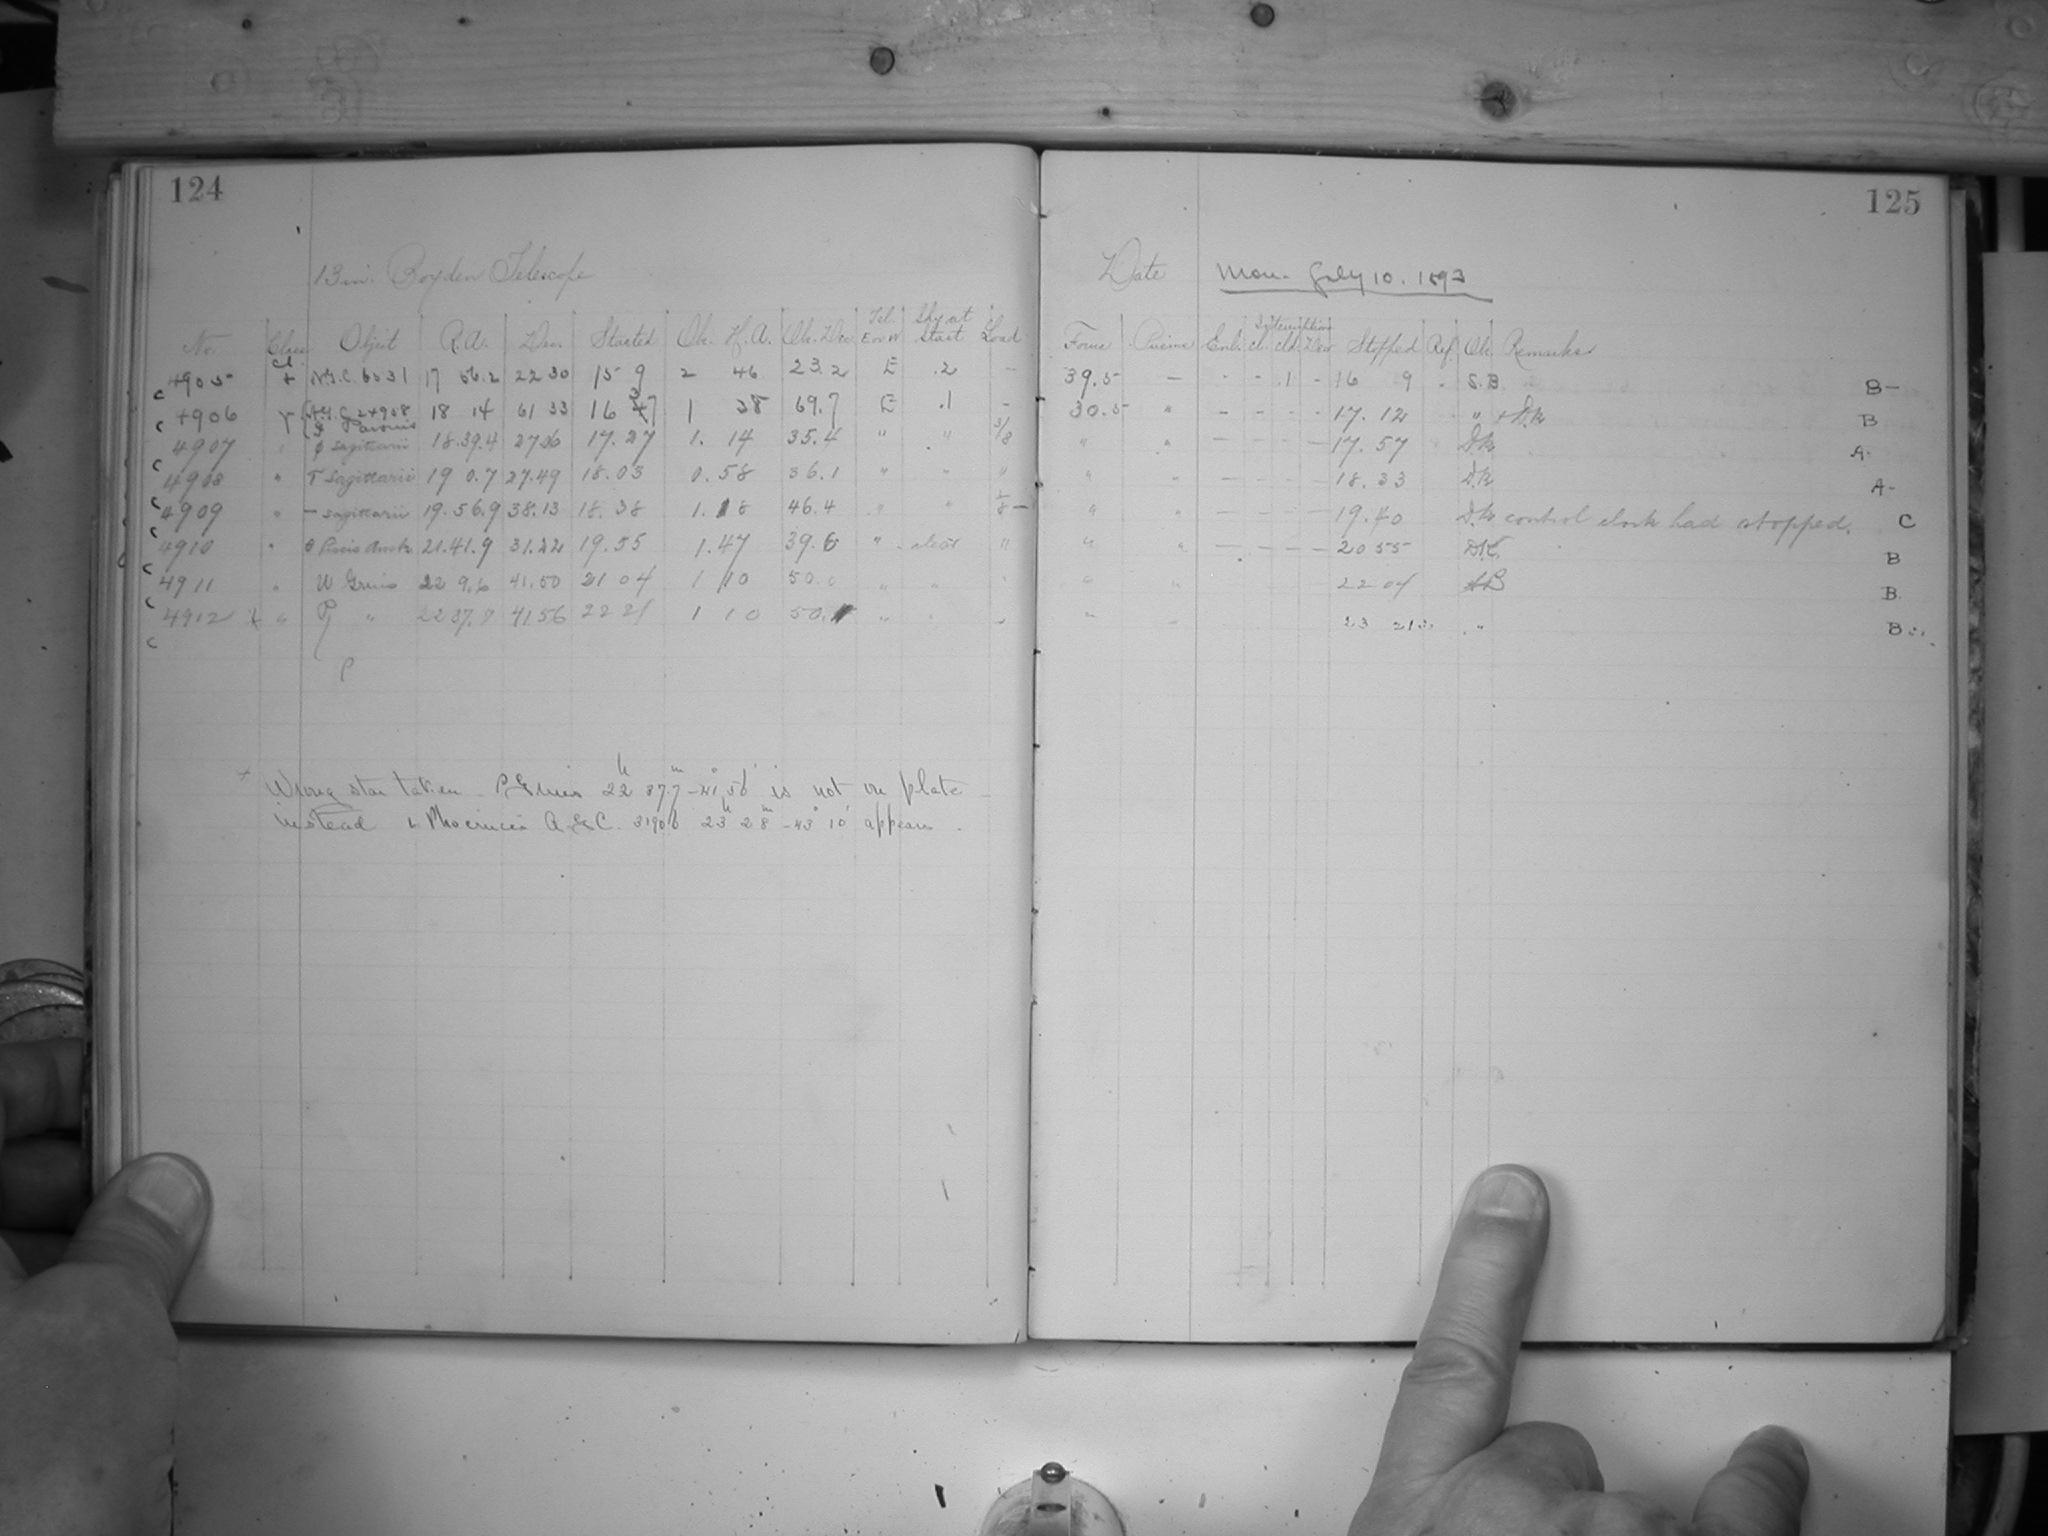 124
13 in. Boyden Telescope
No. Class Object R.A. Dec. Started Ob. H.A. Ob. Dec. Tel. E or W Sky at Start Load
4905 Cl + N.G.C. 6531 17 56.2 22 30 15 9 2 46 23.2 E .2 -
4906 61 33 18 14 16 1 38 69.7 E .1 -
4907 " φ Sagittarii 18.39.4 27.26 17.27 1. 14 35.4 " " 3/8
4908 " τ Sagittarii 19 0.7 27.49 18.03 0.58 36.1 " " "
4909 " - Sagittarii 19.56.9 38.13 18.38 1.18 46.4 " "
4910 " θ Piscis Austr. 21.41.9 31.22 19.55 1.47 39.6 " clear "
4911 " Gruis 22 9.6 41.50 21 04 1 10 50.0 " "
4912 " " 22 37.7 41 56 22 21 1 10 50.1 " "
ρ
+ Wrong star taken - Gruis 22h 37.7m -41° 56' is not on plate -
instead ι Phoenicis A.G.C. 31906 23h 28m -43° 10' appears.
125
Date Mon. July 10. 1893
Focus Prism Enl. Interruptions cl. cld. Dev. Stopped Ref. Ob. Remarks
39.5 - - - 1 - 16 9 - S.B. B-
30.5 " - - - - 17.12 " + D.K. B
" " - - - - 17.57 D.K. A-
" " - - - - 18.33 D.K. A-
" " - - - - 19.40 D.K. control clock had stopped. C
" " - - - - 20 55 D.K. B
" " 22 04 SB B.
" 23 21 " B